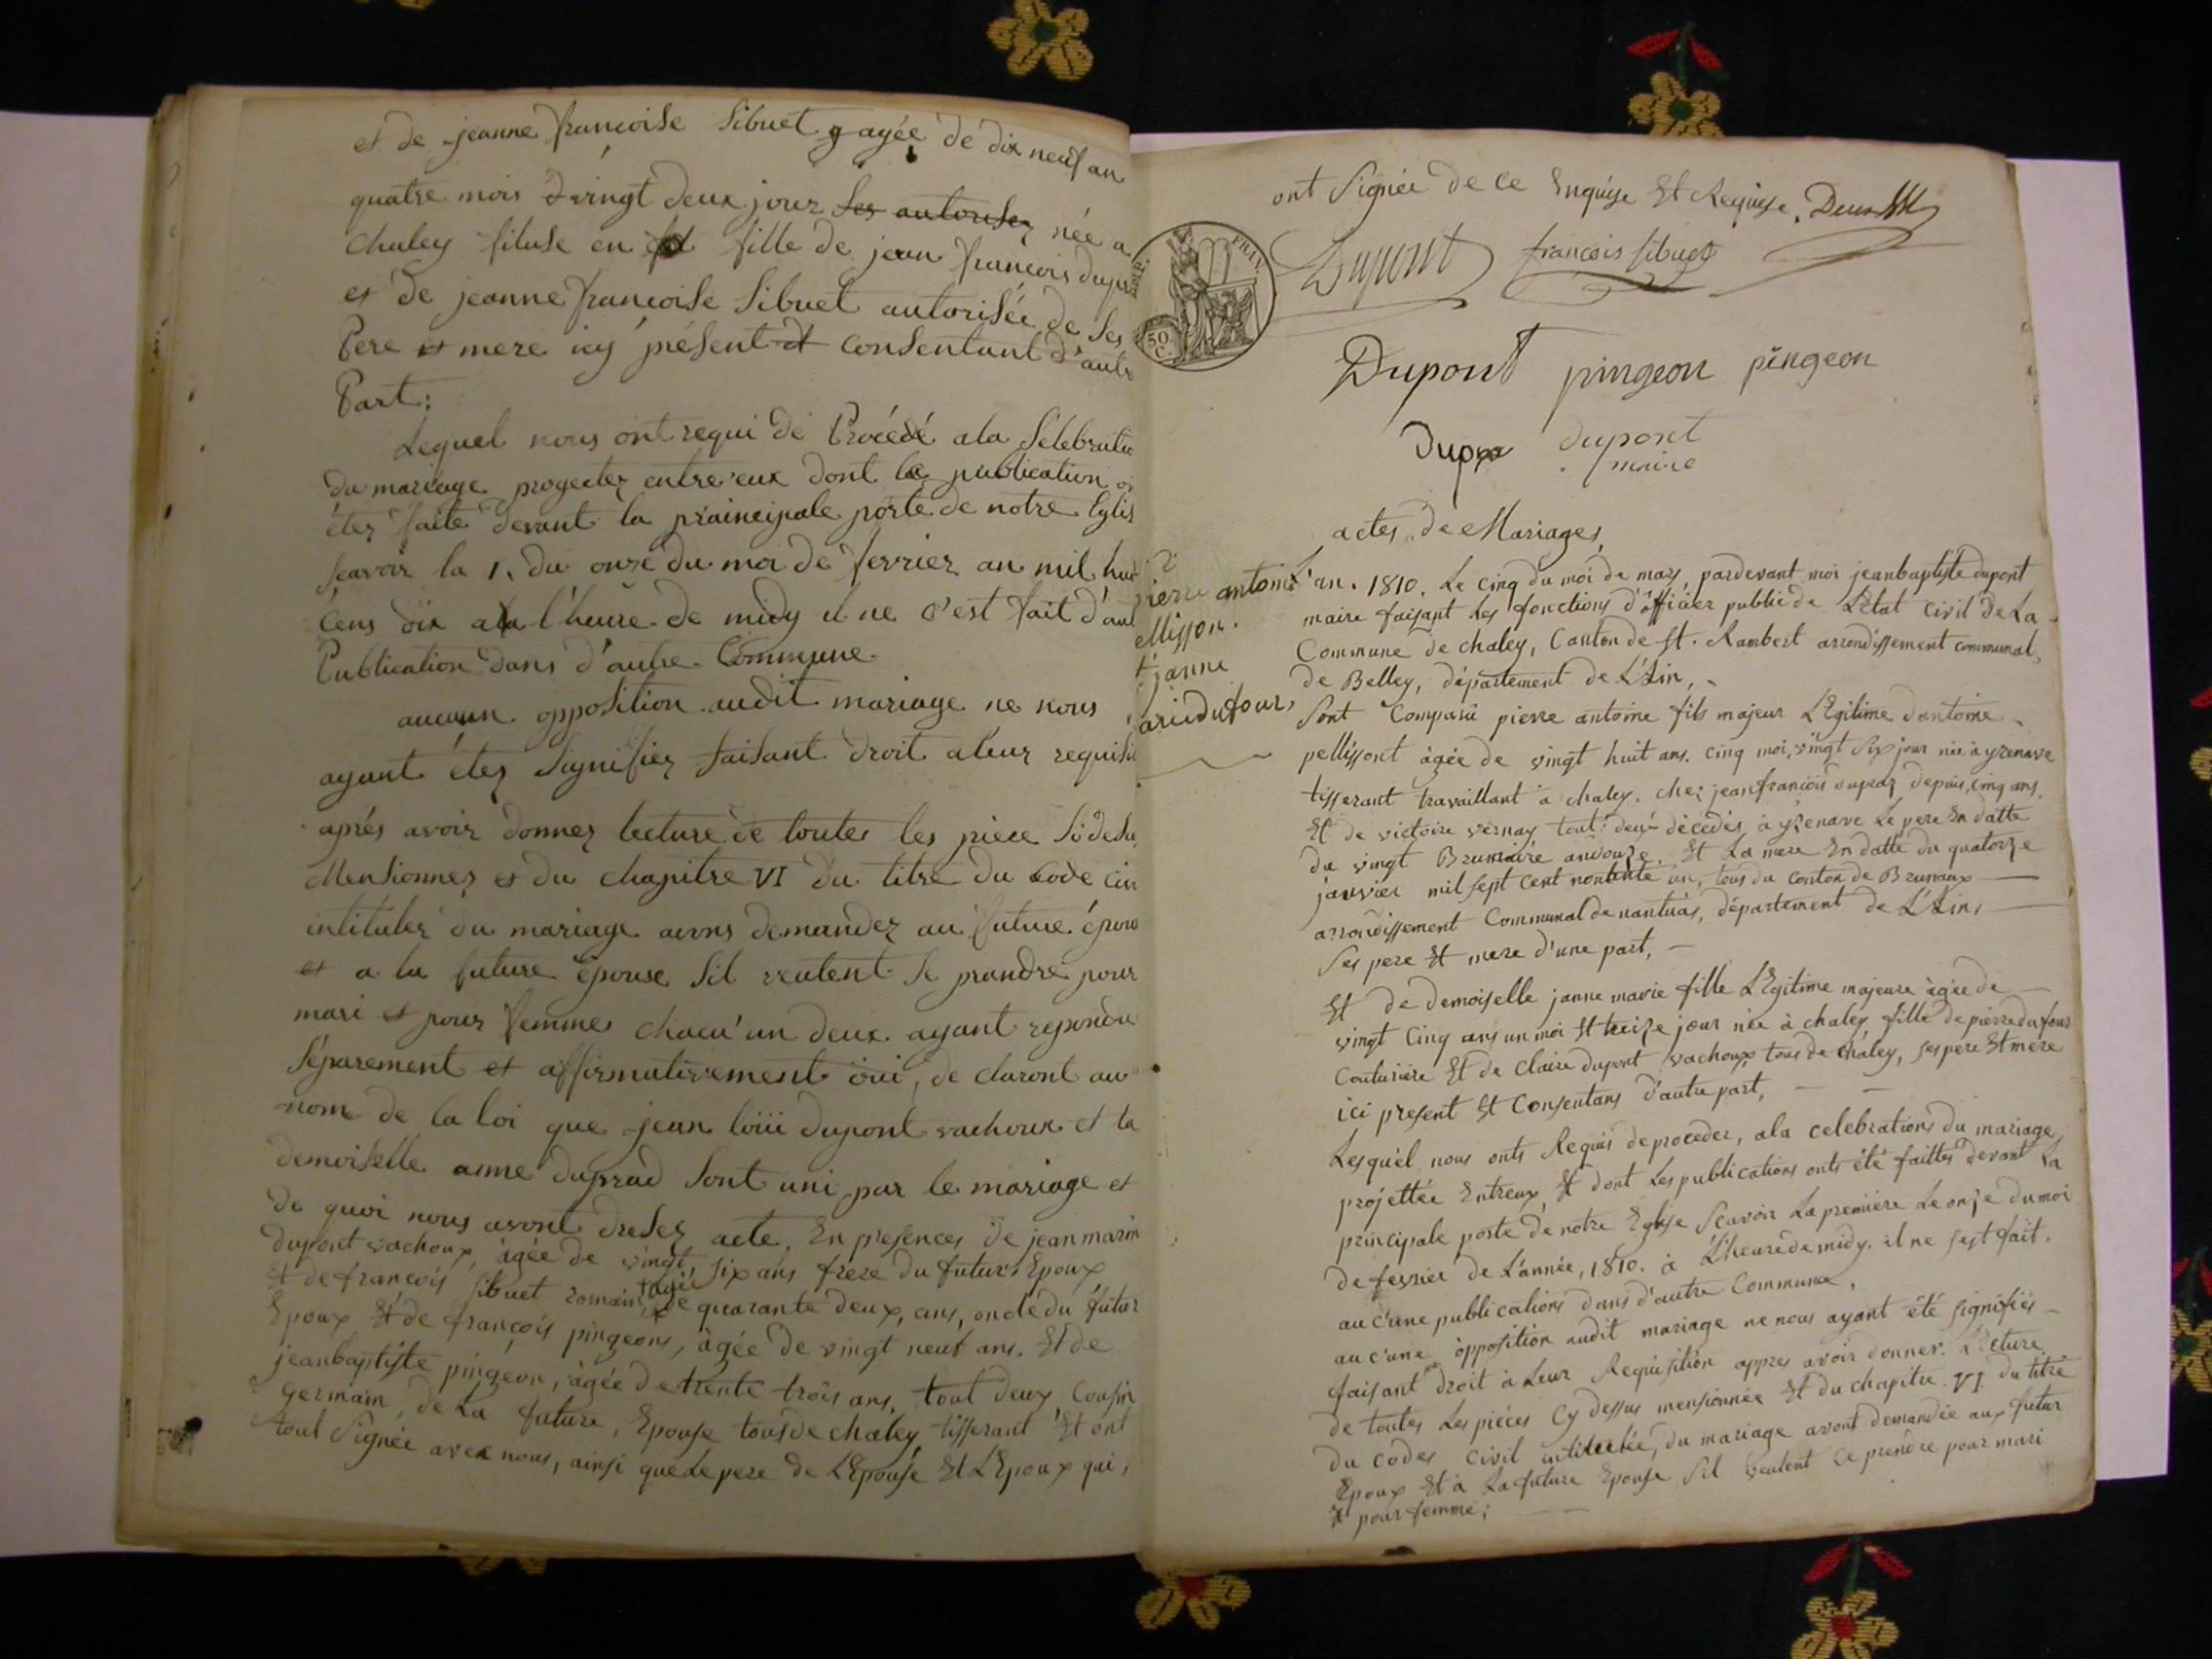 et de jeanne francoise Sibuet agée de dix neuf an
quatre mois & vingt deux jour ses autorisez née a
Chaley fileuse en fille de jean francois dupra
et de jeanne francoise Sibuet autorisée de Ses
Pere et mere icy présent et Consentant d'autre
Part:
Lequel nous ont requi de Procédé ala Sélébratio
du mariage progectez entre'eux dont la publication o
étez faite devant la praincipale porte de notre Eglis
scavoir la 1. du onze du moi de fevrier an mil huit
Cens dix a l'heure de midy il ne c'est fait d'aul
Publication dans d'autre Commune.
aucuun opposition audit mariage ne nous
ayant étez Signifiez faisant droit aleur requisit
aprés avoir donnez lecture de toutes les pièce Sidesu
Mensionnez et du chapitre VI du titre du code civ
intitulez du mariage avons demandez au future épous
et a la future épouse Sil veulent Se prandre pour
mari et pour femme chacu'un deux ayant repondu
Séparement et affirmativement öui, de claront au
nom de la loi que jean loüi dupont vachoux et la
demoiselle anne duprad Sont uni par le mariage et
de quoi nous avont dresez acte. En presences de jean marin
dupont vachoux, àgée de vingt Six ans frere du futur Epoux
Et de francois sibuet romain, agée de quarante deux, ans, oncle du futur
Epoux Et de françois pingeons, àgée de vingt neuf ans. Et de
jeanbaptiste pingeon, àgée de trente trois ans, tout deux Cousin
germain, de La future, Epouse tous de chaley tisserant Et ont
tout Signée avec nous, ainsi que Le pere de L'Epouse Et L'Epoux qui,
ont Signée de ce Enquise Et Requise.
Dupont francois sibuet
RAN.
50
C.
Dupont pingeon pingeon
Dupra dupont
maire
actes de Mariages
pierre antoine
ellisson.
janne
arie dufour
L'an. 1810. Le cinq du moi de mars, pardevant moi jeanbaptiste dupont
maire faisant Les fonctions d'officier public de L'Etat Civil De La
Commune de chaley, Canton de St. Rambert arrondissement communal,
de Belley, département de L'Ain,
Sont Comparü pierre antoine fils majeur Légitime d'antoine
pellissont àgée de vingt huit ans. cinq moi, vingt Six jour née à yzenave
tisserant travaillant à chaley. chez jeanfrancois dupraz depuis, cinq ans,
Et de victoire vernay tout deux décedés à yzenave Le pere En datte
du vingt Brumaire andouze. Et La mere En datte du quatorze
janvier mil sept cent nontente un, tous du conton de Brunaux
arrondissement Communal de nantuas, département de L'Ain,
Ses pere Et mere d'une part,
Et de demoiselle janne marie fille Légitime majeure àgée de
vingt cinq ans un moi Et treize jour née à chaley fille de pierre dufour
Couturiere Et de Claire dupont vachoux tous de chaley, ses pere Et mere
ici present Et Consentans d'autre part,
Lesquél nous onts Requis de proceder, ala celebrations du mariage
projettée Entreux, Et dont Les publications onts été faittes devant La
principale porte de notre Eglise Scavoir La premiere Le onze du moi
de fevrier de L'année, 1810. à L'heure de midy. il ne s'est fait.
auc'une publications dans d'autre Commune,
auc'une opposition audit mariage ne nous ayant été signifiés
faisant droit à Leur Requisition appres avoir donner Lecture
de toutes Les piéces Cy dessus mensionnée Et du chapitre VI. du titre
du codes civil intitulée, du mariage avont demandée aux futur
Epoux Et à La future Epouse Sil veulent Ce prendre pour mari
Et pour femme;